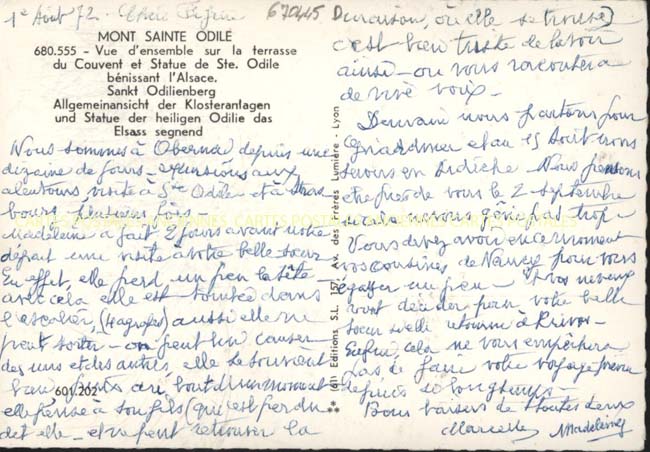 1er Août 72. Chère
670445
MONT SAINTE ODILE
680.555 - Vue d'ensemble sur la terrasse
du Couvent et Statue de Ste. Odile
bénissant l'Alsace.
Sankt Odilienberg
Allgemeinansicht der Klosteranlagen
und Statue der heiligen Odilie das
Elsass segnend
Nous sommes à Obernai depuis une
dizaine de jours excursions aux
alentours visite à Ste Odile et à Stras
bourg plusieurs fois
Madeleine a fait 2 jours avant notre
départ une visite à votre belle-sœur
En effet, elle perd un peu la tête
avec cela elle est tombée dans
l'escalier, (4 agrafes) aussi elle ne
peut sortir - on peut lui causer
des uns et des autres, elle se souvient
bien, puis au bout d'un moment
elle pense à son fils (qui est perdu
dit elle - et ne peut retrouver la
601.202
** Gil Editions, S.L. 157, Av. des Frères Lumière - Lyon
CARTES POSTALES ANCIENNES
maison, où elle se trouve)
c'est bien triste de la voir
ainsi - on vous racontera
de vive voix.
Demain nous partons pour
Gérardmer et au 15 Août nous
serons en Ardèche Nous pensons
être près de vous le 2 Septembre
si cela ne vous gêne pas trop -
Vous devez avoir en ce moment
vos cousines de Nancy pour vous
égayer un peu - Et vos neveux
vont décider pour votre belle
sœur si elle retourne à Privas -
Enfin, cela ne vous empêchera
pas de faire votre voyage prévu
depuis si longtemps -
Bons baisers de toutes deux
Marcelle Madeleine